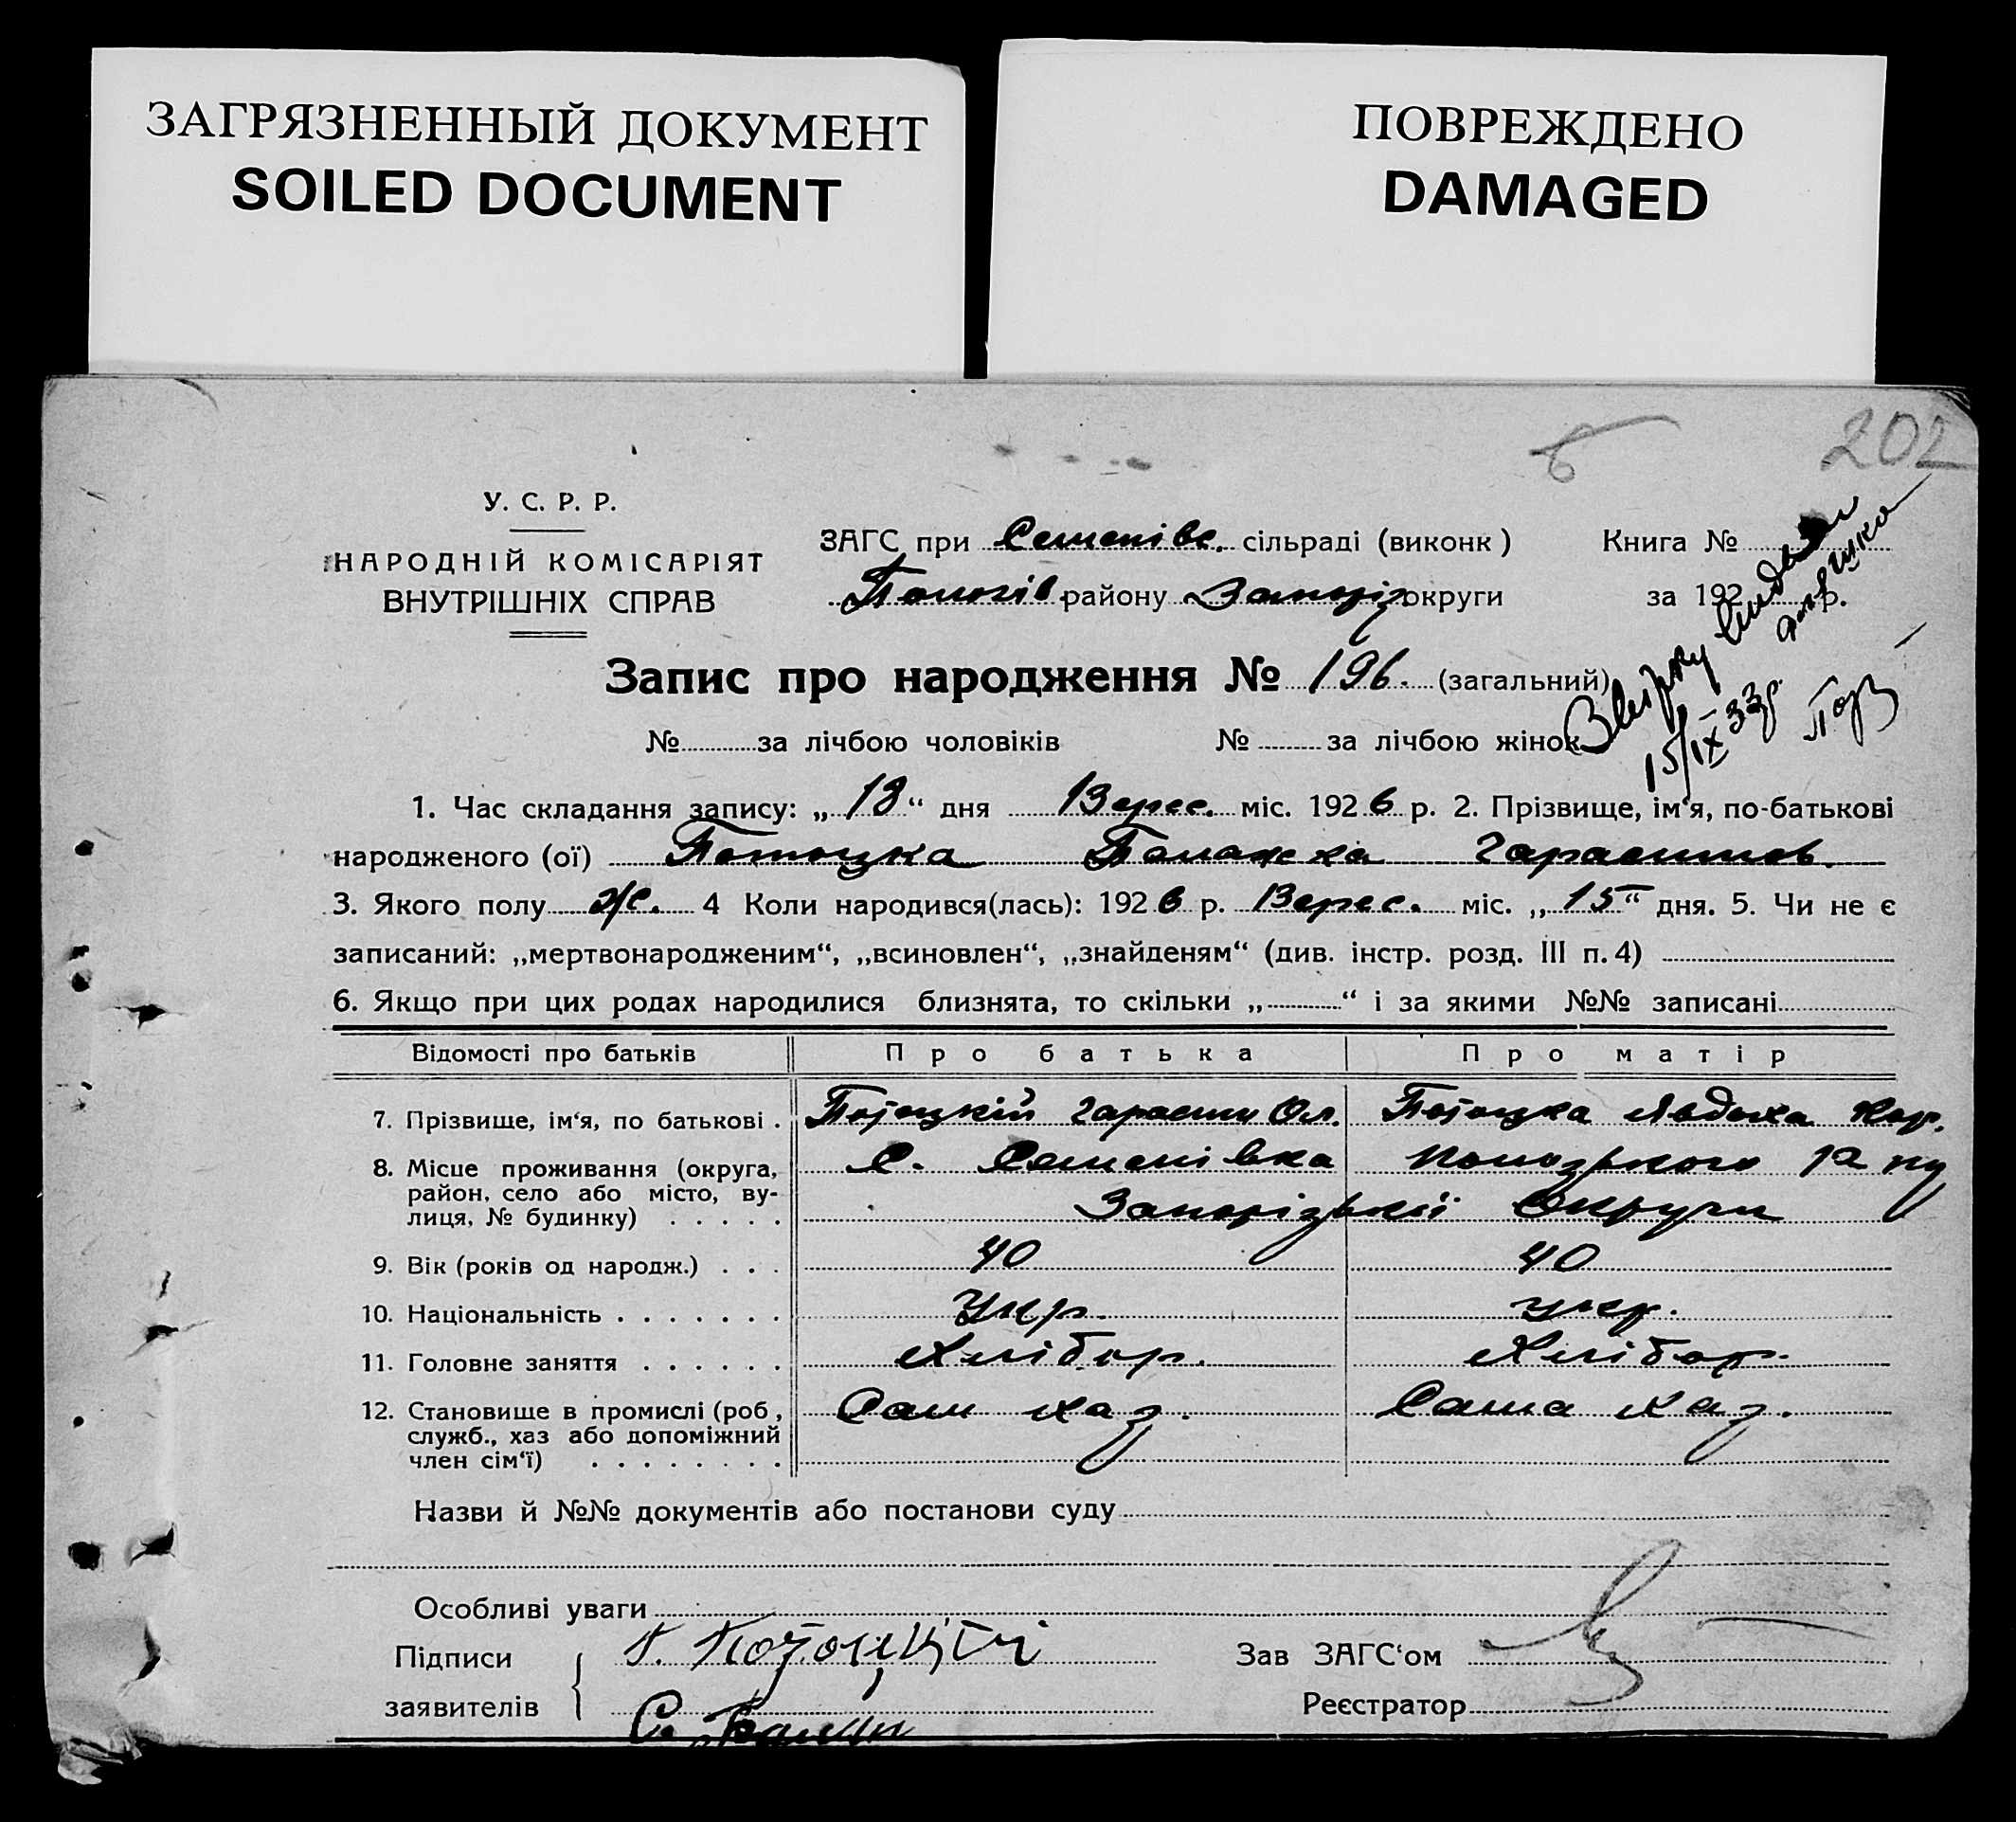 ЗАГРЯЗНЕННЫЙ ДОКУМЕНТ
SOILED DOCUMENT
ПОВРЕЖДЕНО
DAMAGED
202
У. С. Р. Р.
НАРОДНІЙ КОМІСАРІЯТ
ВНУТРІШНІХ СПРАВ
ЗАГС при Семенівс. сільраді (виконк)
Пологів. району Запоріз. округи
Книга №
за 192 р.
Запис про народження № 196. (загальний)
№ за лічбою чоловіків № за лічбою жінок
15/IX 33р.
1. Час складання запису: „18“ дня Верес. міс. 1926 р. 2. Прізвище, ім‘я, по-батькові
народженого (ої) Потоцка Палажка Гарасимов.
3. Якого полу ж. 4 Коли народився(лась): 1926 р. Верес. міс. „15“ дня. 5. Чи не є
записаний: „мертвонародженим“, „всиновлен“, „знайденям“ (див. інстр. розд. III п. 4)
6. Якщо при цих родах народилися близнята, то скільки „ “ і за якими №№ записані
Відомості про батьків Про батька Про матір
7. Прізвище, ім‘я, по батькові . Потоцкій Гарасим Ол. Потоцка Явдоха Кар.
8. Місце проживання (округа, С. Семенівка Пологзького р-ну
район, село або місто, ву-
лиця, № будинку) . . . . . Запорізької Округи
9. Вік (років од народж.) . . . 40 40
10. Національність . . . . . . . Укр. укр.
11. Головне заняття . . . . . . Хлібор. Хлібор.
12. Становище в промислі (роб., Сам хаз. Сама хаз.
служб., хаз або допоміжний
член сім‘ї) . . . . . . . .
Назви й №№ документів або постанови суду
Особливі уваги
Підписи Г. Потоцкій Зав ЗАГС‘ом
заявителів С. Реєстратор